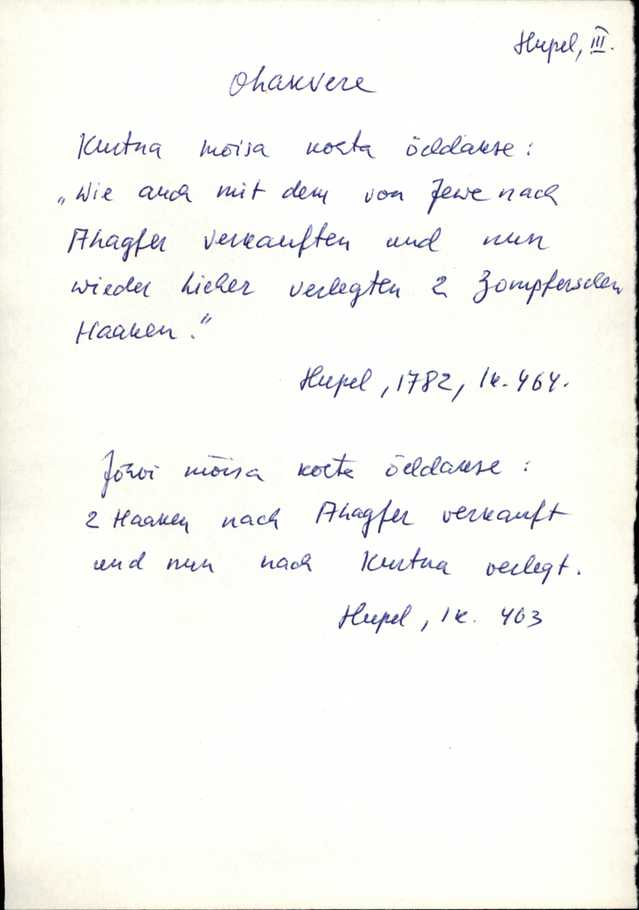 Hupel, III.
Ohakvere
Kurtna mõisa kohta öeldakse:
„Wie auch mit dem von Jewe nach
Ahagfer verkauften und nun
wieder hieher verlegten 2 Zompferschen
Haaken."
Hupel, 1782, lk. 464.
Jõhvi mõisa kohta öeldakse:
2 Haaken nach Ahagfer verkauft
und nun nach Kurtna verlegt.
Hupel, lk. 463